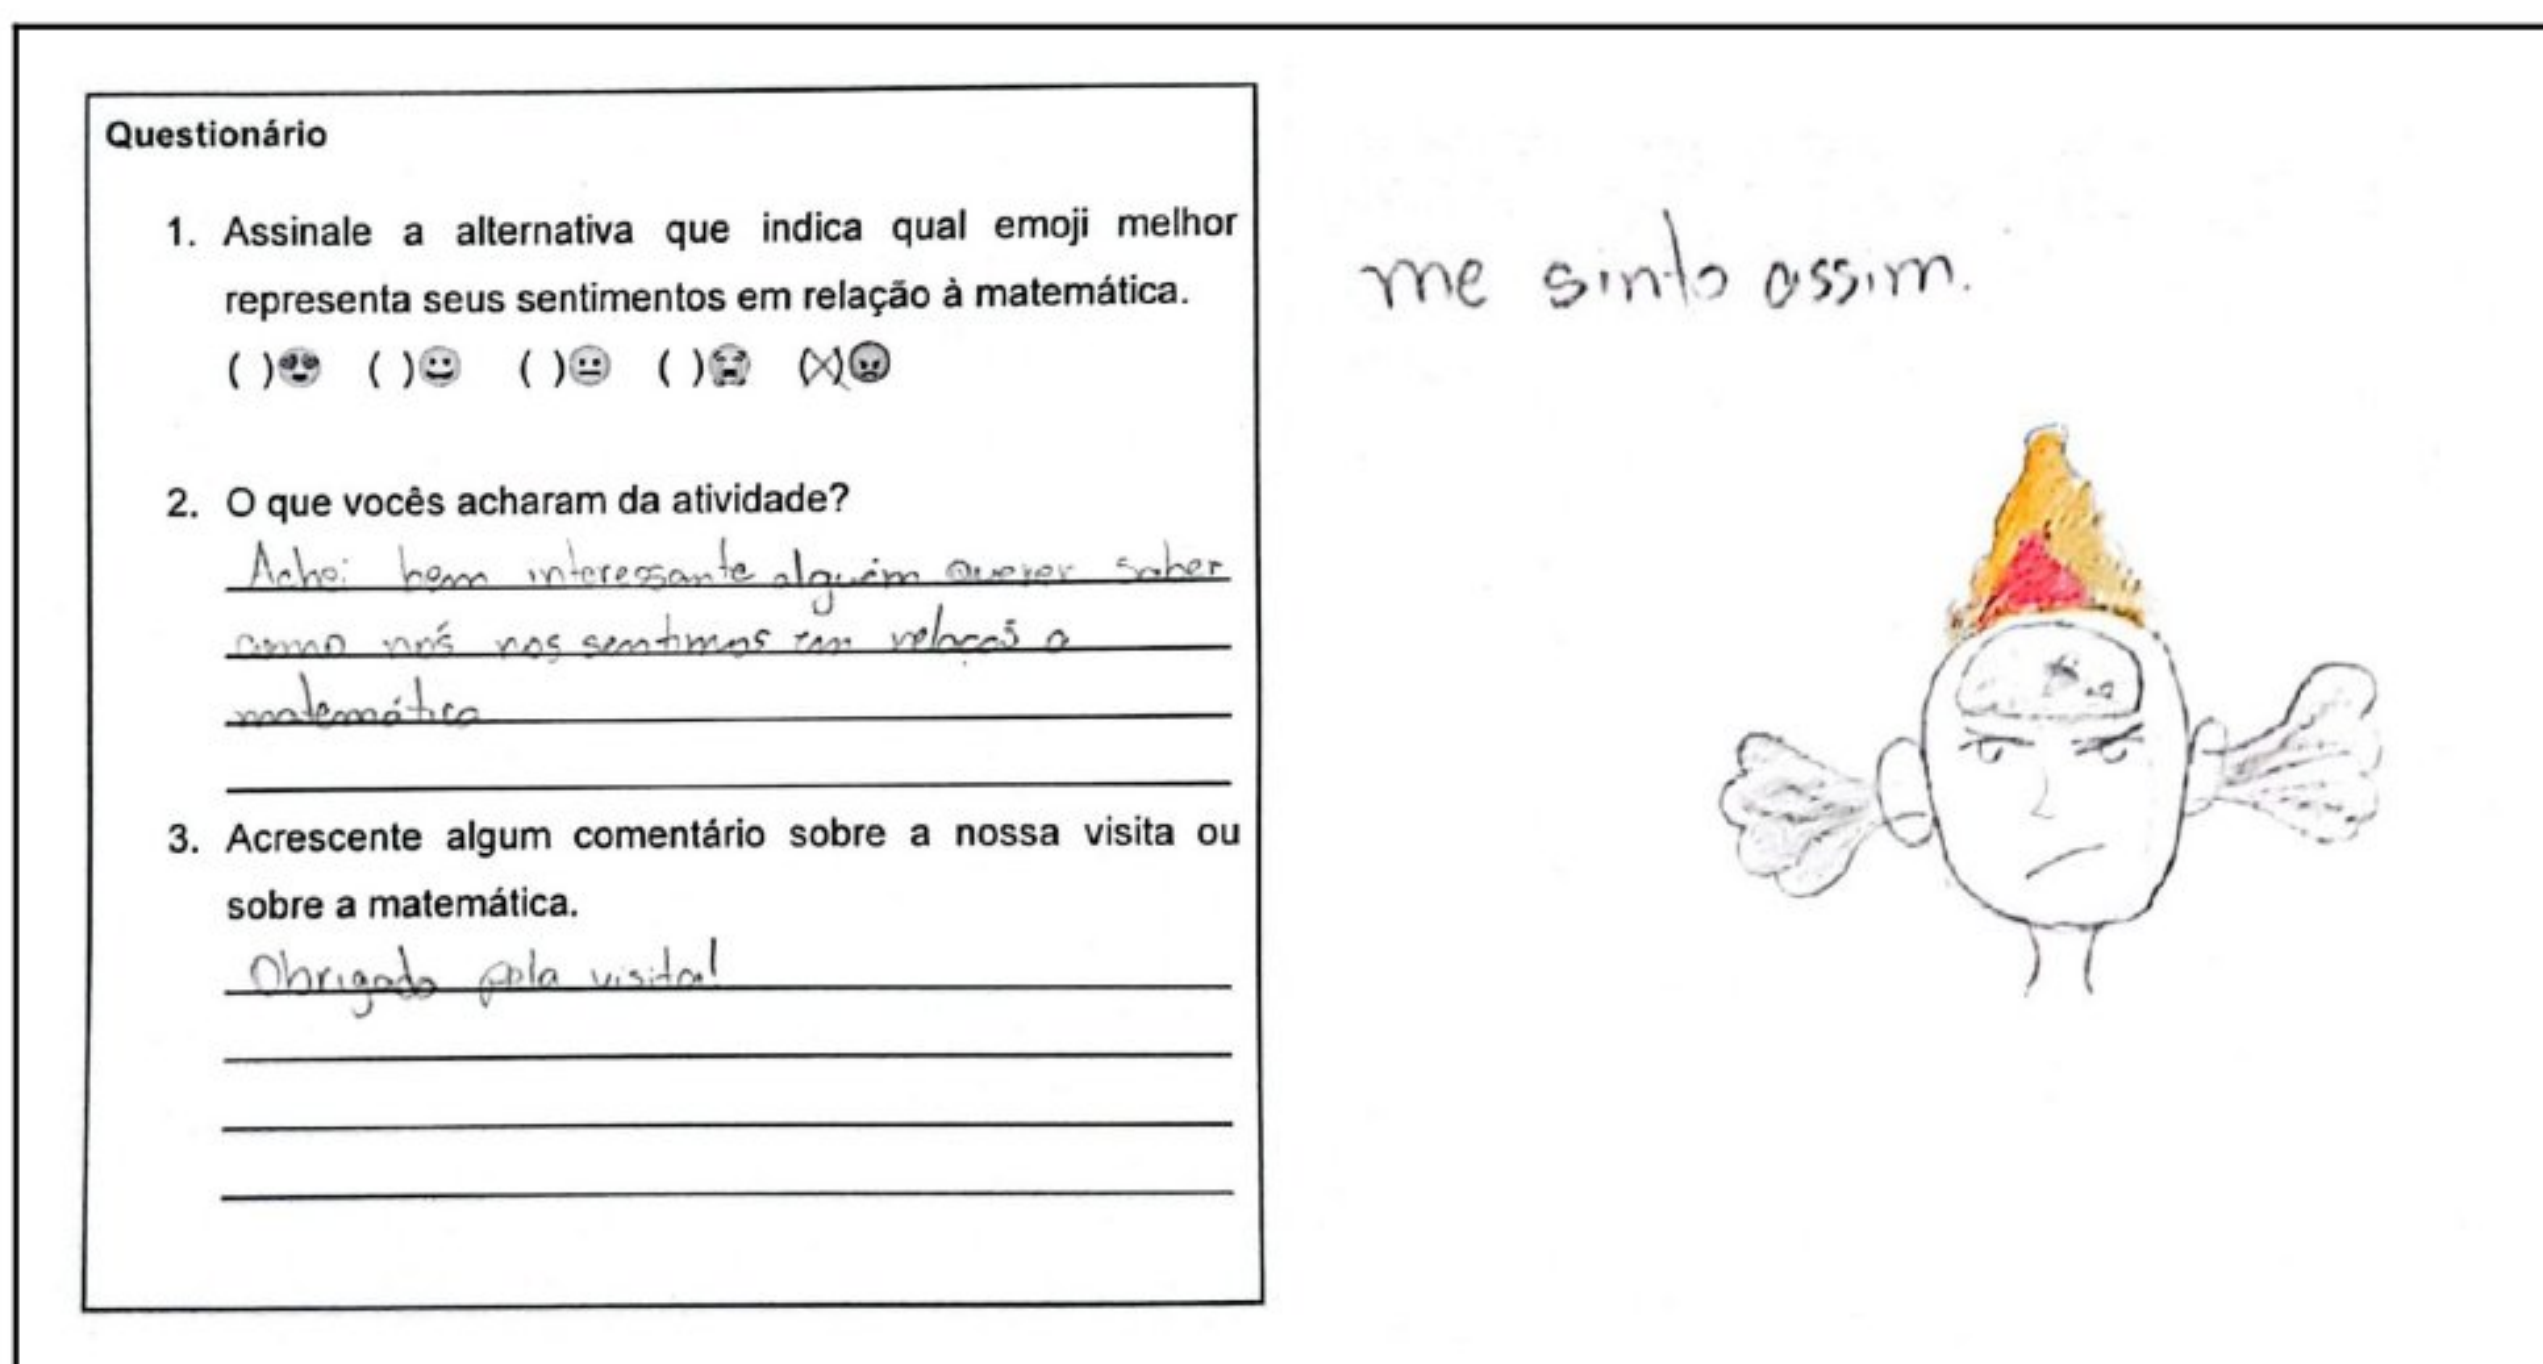 Questionário
1. Assinale a alternativa que indica qual emoji melhor
representa seus sentimentos em relação à matemática.
( )😍 ( )😀 ( )😐 ( )😭 (X)😡
2. O que vocês acharam da atividade?
Achei bem interessante alguém querer saber
como nós nos sentimos em relação a
matemática
3. Acrescente algum comentário sobre a nossa visita ou
sobre a matemática.
Obrigado pela visita!
me sinto assim.